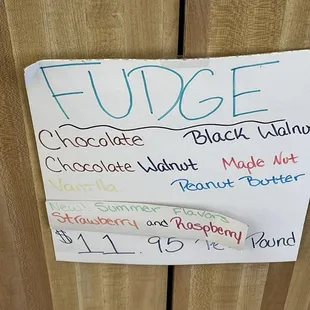 FUDGE
Chocolate Black Walnu
Chocolate Walnut Made Nut
Vanilla Peanut Butter
New! Summer Flavors
Strawberry and Raspberry
$11.95 Pe Pound